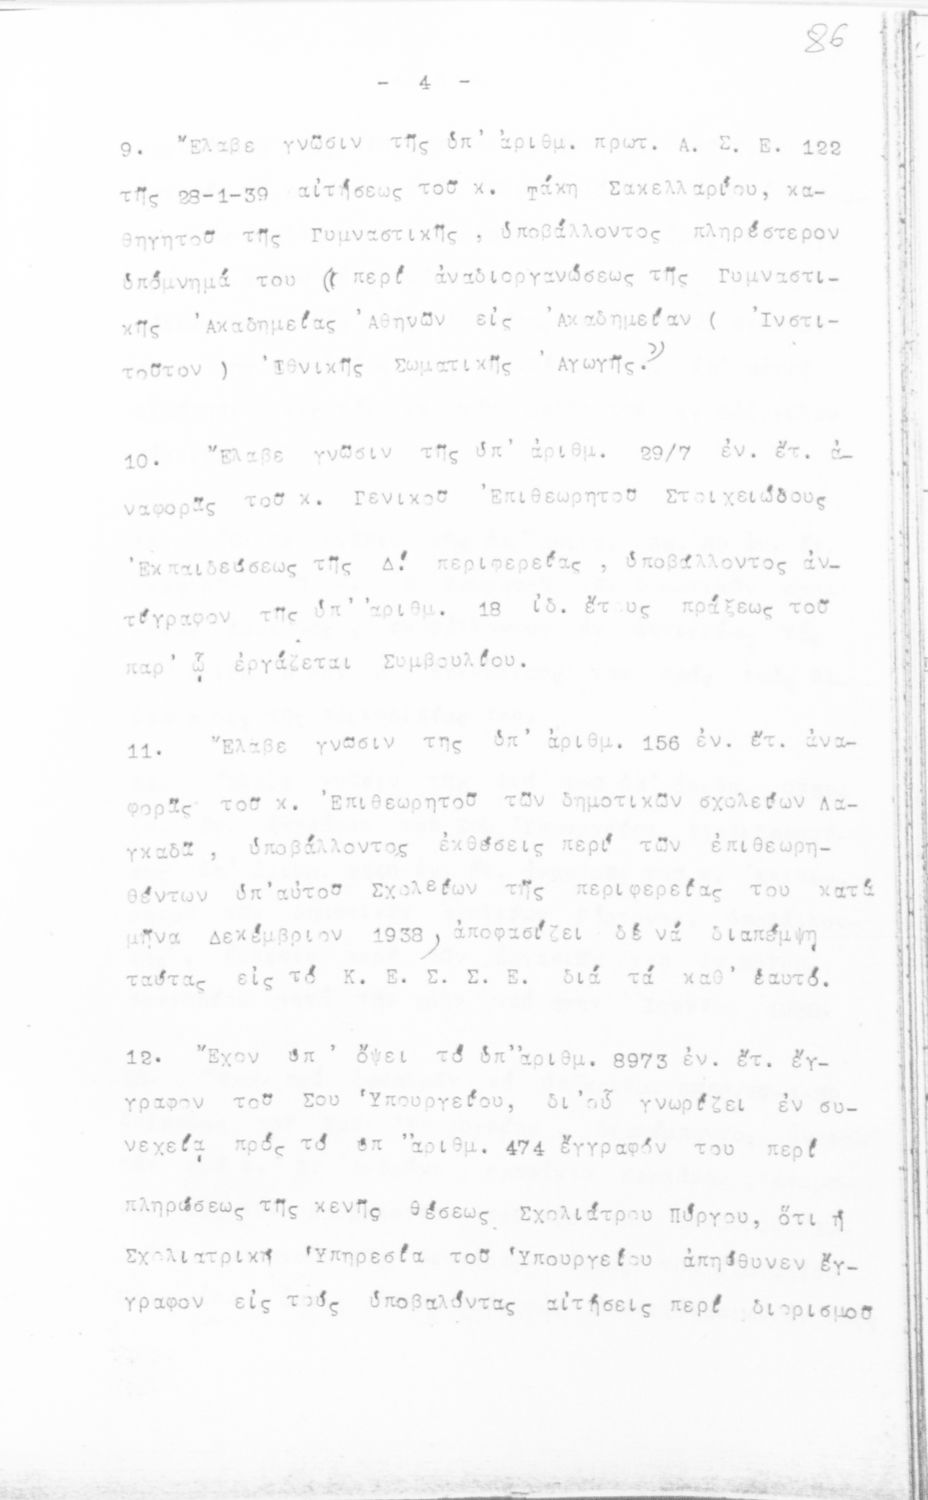 86
- 4 -
9. Ἔλαβε γνῶσιν τῆς ὑπ' ἀριθμ. πρωτ. Α. Σ. Ε. 122
τῆς 28-1-39 αἰτήσεως τοῦ κ. Φάκη Σακελλαρίου, κα-
θηγητοῦ τῆς Γυμναστικῆς , ὑποβάλλοντος πληρέστερον
ὑπόμνημά του (( περί ἀναδιοργανώσεως τῆς Γυμναστι-
κῆς Ἀκαδημείας Ἀθηνῶν εἰς Ἀκαδημείαν ( Ἰνστι-
τοῦτον ) Ἐθνικῆς Σωματικῆς Ἀγωγῆς.))
10. Ἔλαβε γνῶσιν τῆς ὑπ' ἀριθμ. 29/7 ἐν. ἔτ. ἀ-
ναφορᾶς τοῦ κ. Γενικοῦ Ἐπιθεωρητοῦ Στοιχειώδους
Ἐκπαιδεύσεως τῆς Δ! περιφερείας , ὑποβάλλοντος ἀν-
τίγραφον τῆς ὑπ' 'ἀριθμ. 18 ἰδ. ἔτους πράξεως τοῦ
παρ' ᾧ ἐργάζεται Συμβουλίου.
11. Ἔλαβε γνῶσιν της ὑπ' ἀριθμ. 156 ἐν. ἔτ. ἀνα-
φορᾶς τοῦ κ. Ἐπιθεωρητοῦ τῶν δημοτικῶν σχολείων Λα-
γκαδᾶ , ὑποβάλλοντος ἐκθέσεις περί τῶν ἐπιθεωρη-
θέντων ὑπ'αὐτοῦ Σχολείων τῆς περιφερείας του κατά
μῆνα Δεκέμβριον 1938, ἀποφασίζει δέ νά διαπέμψῃ
ταύτας εἰς τό Κ. Ε. Σ. Σ. Ε. διά τά καθ' ἑαυτό.
12. Ἔχον ὑπ ' ὄψει τό ὑπ''ἀριθμ. 8973 ἐν. ἔτ. ἔγ-
γραφον τοῦ Σου Ὑπουργείου, δι'οὗ γνωρίζει ἐν συ-
νεχείᾳ πρός τό ὑπ 'ἀριθμ. 474 ἔγγραφόν του περί
πληρώσεως τῆς κενῆς θέσεως Σχολιάτρου Πύργου, ὅτι ἡ
Σχολιατρική Ὑπηρεσία τοῦ Ὑπουργείου ἀπηύθυνεν ἔγ-
γραφον εἰς τούς ὑποβαλόντας αἰτήσεις περί διορισμοῦ